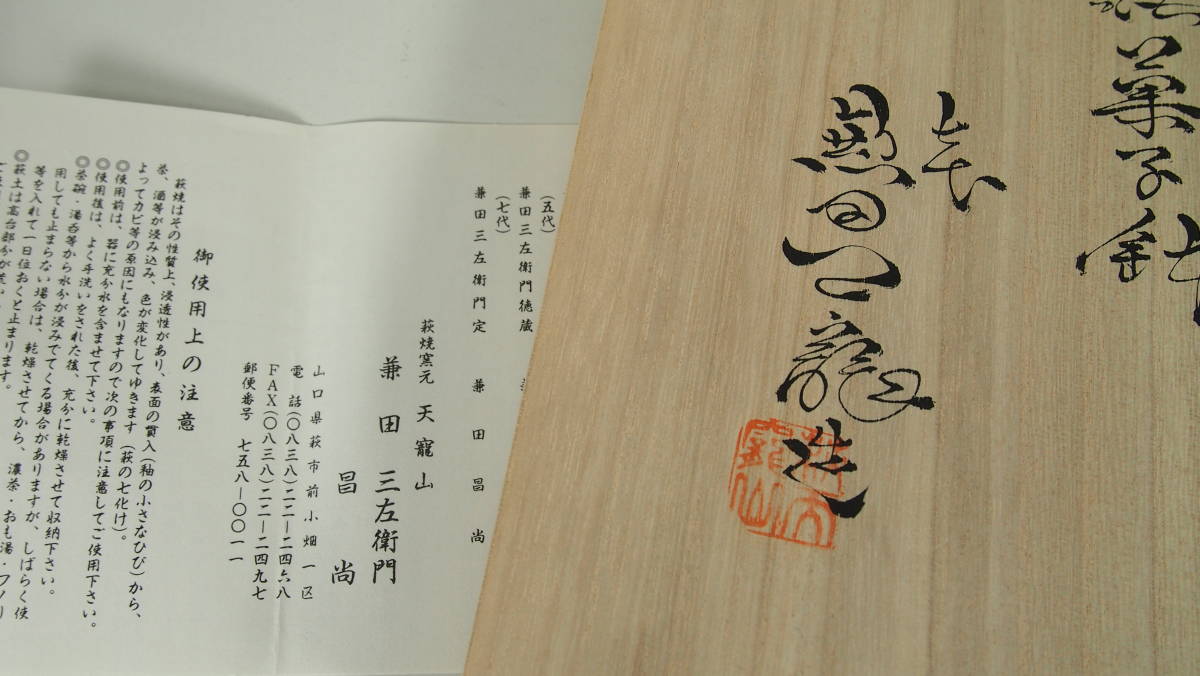 菓子鉢
萩
天寵山造
(五代)
兼田三左衛門徳蔵
(七代)
兼田三左衛門定
兼田昌尚
萩焼窯元 天寵山
兼田三左衛門
昌尚
山口県萩市前小畑一区
電話(〇八三八)二二-二四六八
FAX(〇八三八)二二-二四九七
郵便番号 七五八-〇〇一一
御使用上の注意
萩焼はその性質上、浸透性があり、表面の貫入(釉の小さなひび)から、
茶、酒等が浸み込み、色が変化してゆきます(萩の七化け)。
よってカビ等の原因にもなりますので次の事項に注意してご使用下さい。
◎使用前は、器に充分水を含ませて下さい。
◎使用後は、よく手洗いをされた後、充分に乾燥させて収納下さい。
◎茶碗・湯呑等から水分が浸みでてくる場合がありますが、しばらく使
用しても止まらない場合は、乾燥させてから、濃茶・おも湯・フノリ
等を入れて一日位おくと止まります。
◎萩土は高台部分が